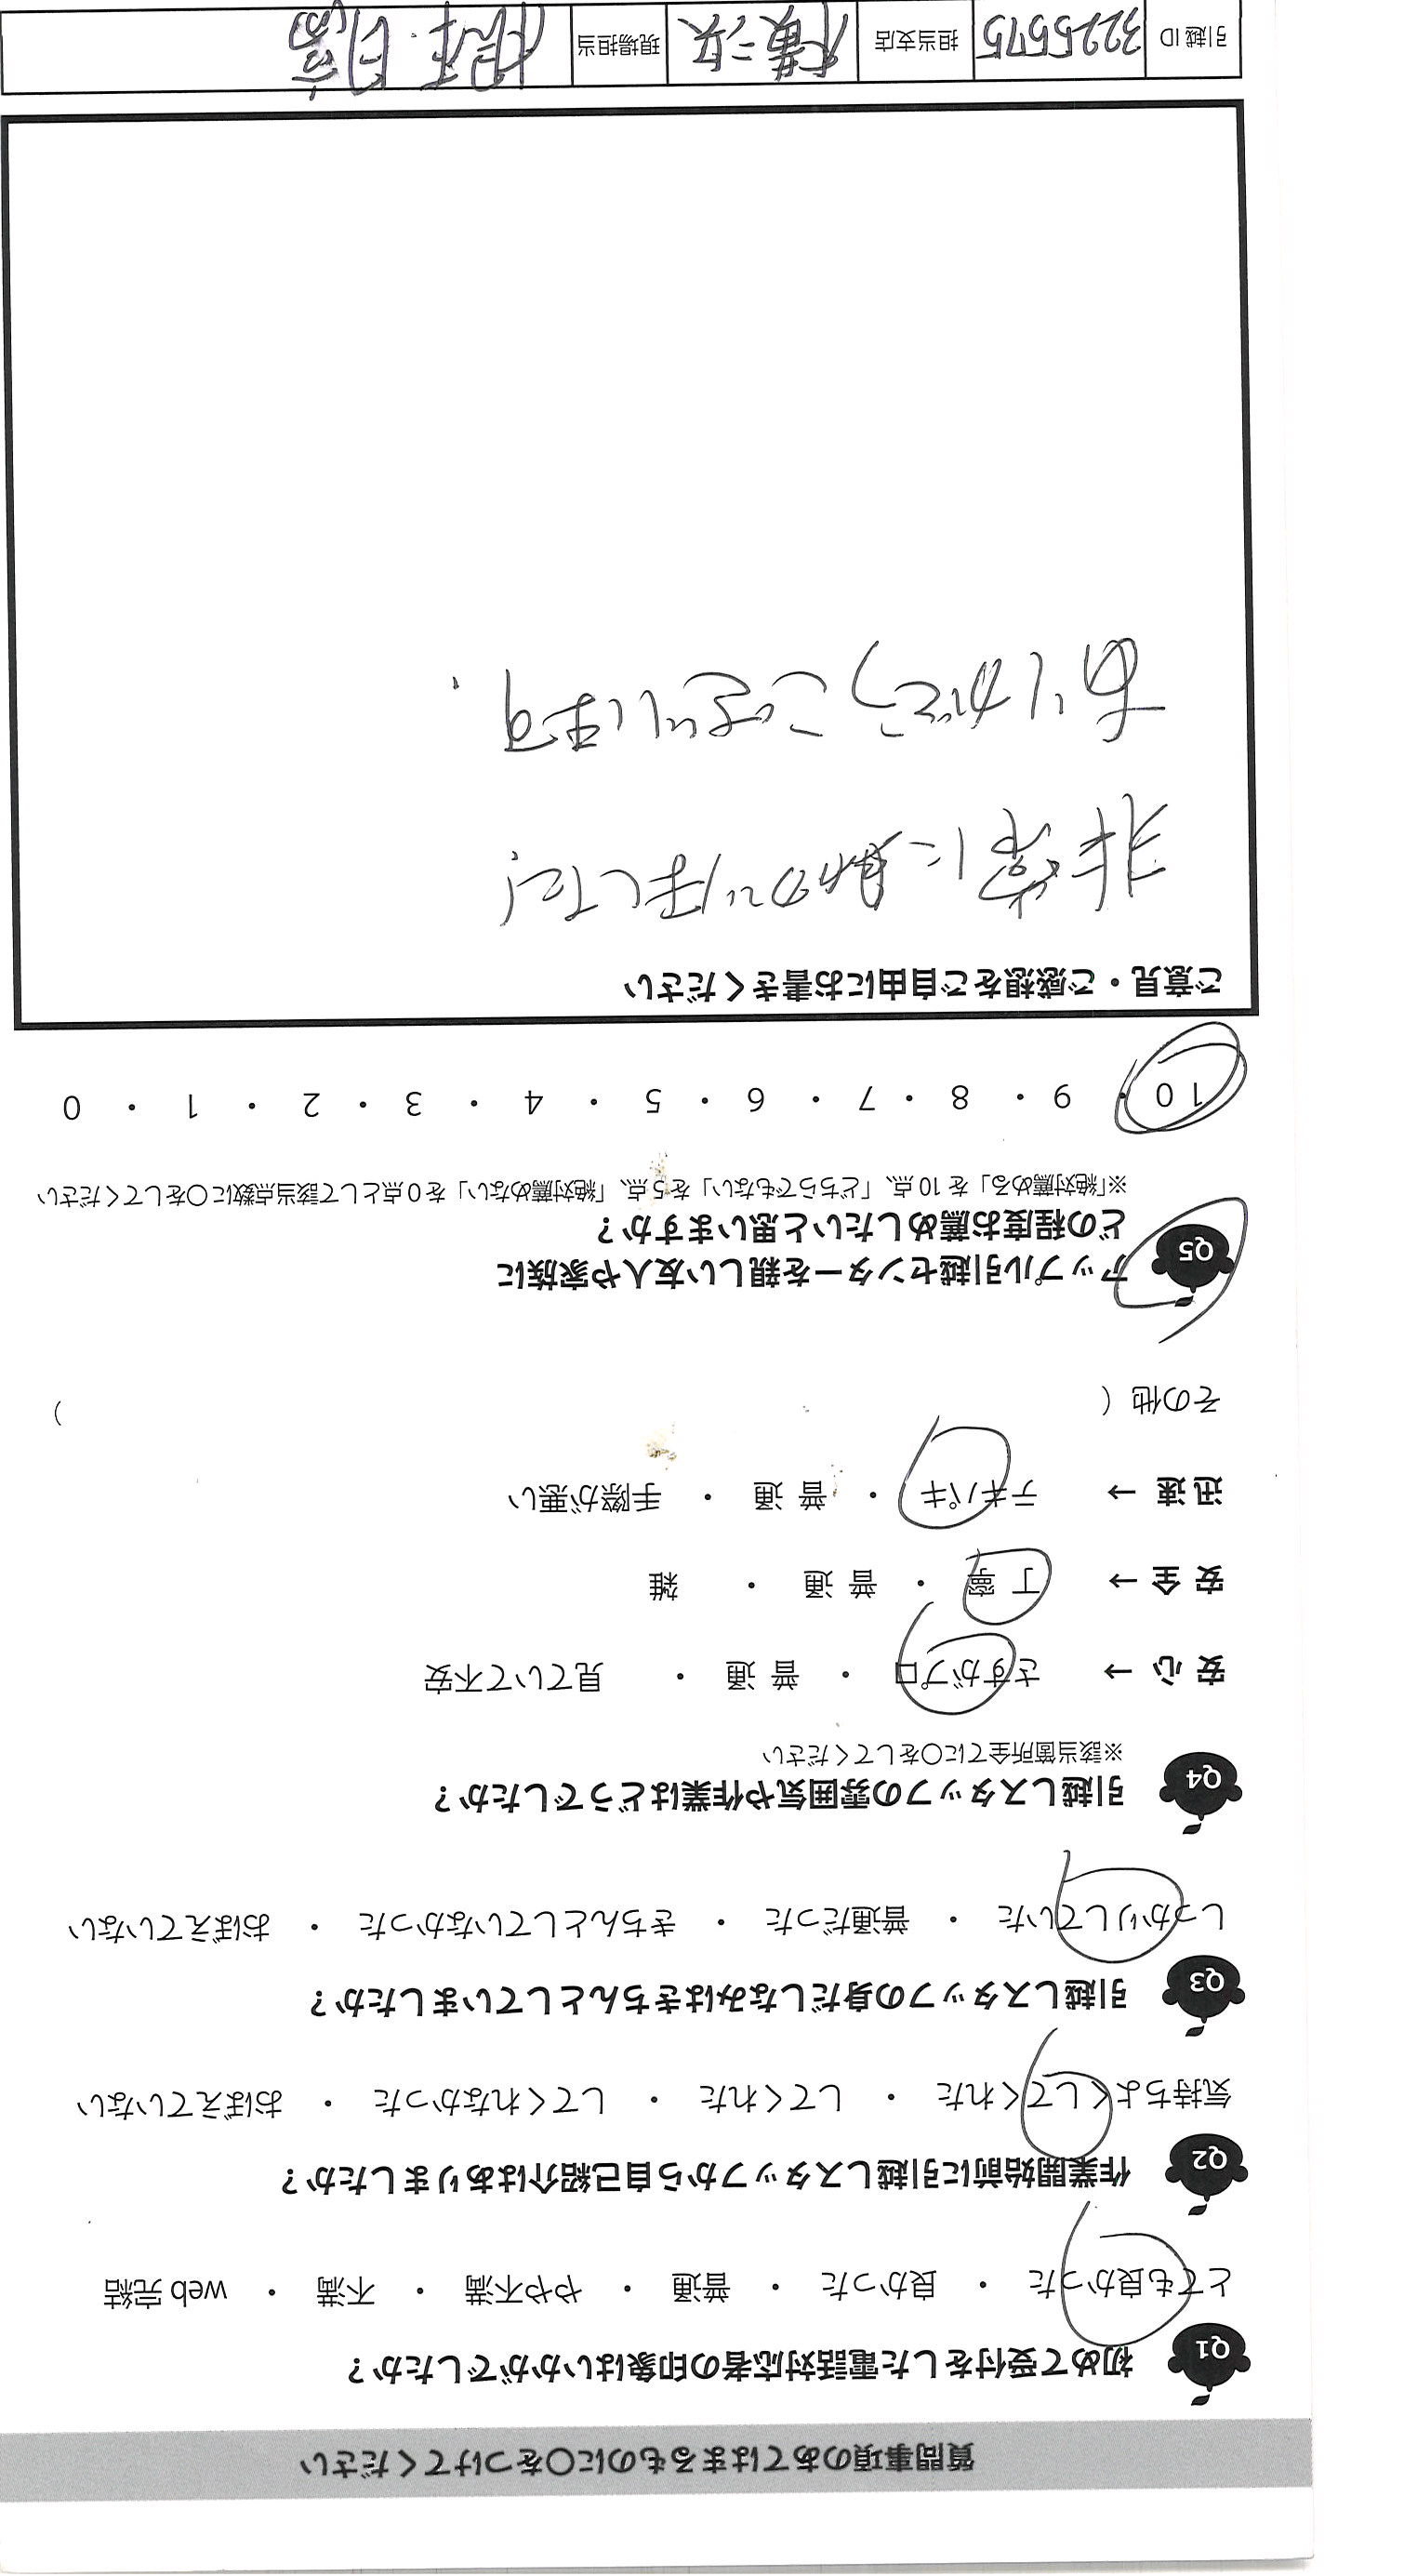 質問事項のあてはまるものに〇をつけてください
Q1 初めて受付をした電話対応者の印象はいかがでしたか？
とても良かった ・ 良かった ・ 普通 ・ やや不満 ・ 不満 ・ web 完結
Q2 作業開始前に引越しスタッフから自己紹介はありましたか？
気持ちよくしてくれた ・ してくれた ・ してくれなかった ・ おぼえていない
Q3 引越しスタッフの身だしなみはきちんとしていましたか？
しっかりしていた ・ 普通だった ・ きちんとしていなかった ・ おぼえていない
Q4 引越しスタッフの雰囲気や作業はどうでしたか？
※該当箇所全てに〇をしてください
安 心 → さすがプロ ・ 普 通 ・ 見ていて不安
安 全 → 丁 寧 ・ 普 通 ・ 雑
迅 速 → テキパキ ・ 普 通 ・ 手際が悪い
その他（ ）
Q5 アップル引越センターを親しい友人や家族に
どの程度お薦めしたいと思いますか？
※「絶対薦める」を 10 点、「どちらでもない」を 5 点、「絶対薦めない」を 0 点として該当点数に〇をしてください
10 ・ 9 ・ 8 ・ 7 ・ 6 ・ 5 ・ 4 ・ 3 ・ 2 ・ 1 ・ 0
ご意見・ご感想をご自由にお書きください
非常に助かりました
ありがとうございます.
引越 ID 3225575 担当支店 横二 現場担当